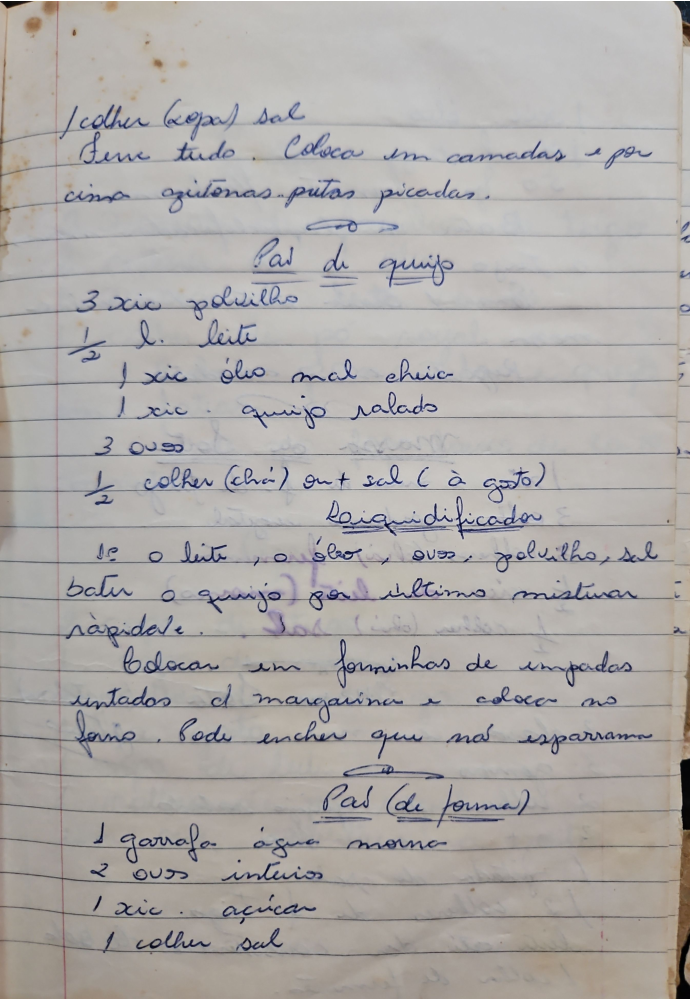 1 colher (sopa) sal
Ferve tudo. Coloca em camadas e por
cima azeitonas pretas picadas.
Pão de queijo
3 xic polvilho
1/2 l. leite
1 xic óleo mal cheia
1 xic. queijo ralado
3 ovos
1/2 colher (chá) ou + sal (à gosto)
Laiquidificador
1º o leite, o óleo, ovos, polvilho, sal
bater o queijo por último misturar
ràpidate.
Colocar em forminhas de empadas
untadas c/ margarina e coloca no
forno. Pode encher que não esparrama
Pão (de forma)
1 garrafa água morna
2 ovos inteiros
1 xic. açúcar
1 colher sal